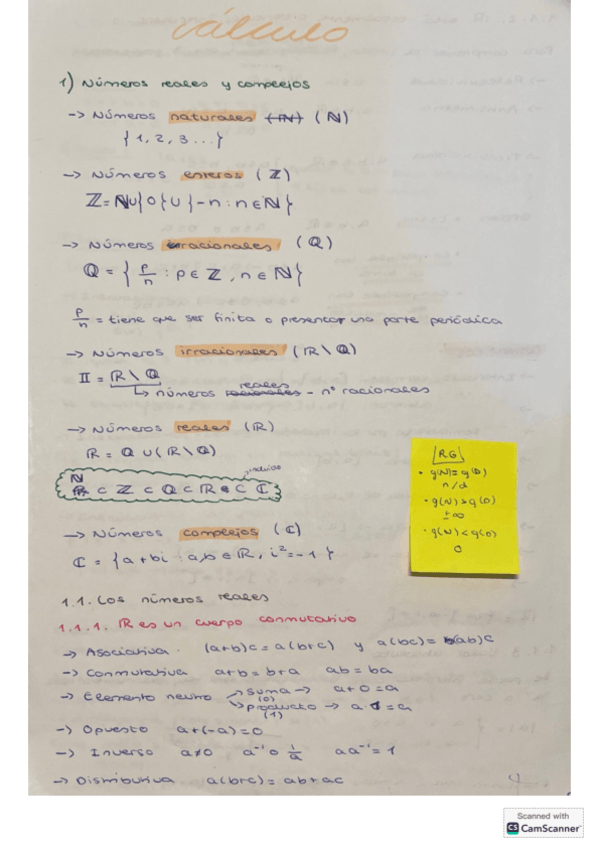 cálculo
1) Números reales y complejos
-> Números naturales (ℕ) (ℕ)
{1, 2, 3 ...}
-> Números enteros (ℤ)
ℤ = ℕ ∪ {0} ∪ {-n : n ∈ ℕ}
-> Números racionales (ℚ)
ℚ = { p/n : p ∈ ℤ, n ∈ ℕ }
p/n = tiene que ser finita o presentar una parte periódica
-> Números irracionales (ℝ \ ℚ)
𝕀 = ℝ \ ℚ
reales
↳ números racionales - nº racionales
-> Números reales (ℝ)
ℝ = ℚ ∪ (ℝ \ ℚ)
ℕ
⊂ ℤ ⊂ ℚ ⊂ ℝ ⊂ ℂ
-> Números complejos (ℂ)
ℂ = {a + bi : a, b ∈ ℝ, i² = -1}
|RG|
· g(N) = g(D)
n/d
· g(N) > g(D)
±∞
· g(N) < g(D)
0
1.1. Los números reales
1.1.1. ℝ es un cuerpo conmutativo
-> Asociativa · (a+b)c = a(b+c) y a(bc) = (ab)c
-> Conmutativa a+b = b+a ab = ba
-> Elemento neutro suma -> a+0 = a
(0)
producto -> a·1 = a
(1)
-> Opuesto a+(-a) = 0
-> Inverso a≠0 a⁻¹ o 1/a aa⁻¹ = 1
-> Distributiva a(b+c) = ab+ac
Scanned with
CS CamScanner